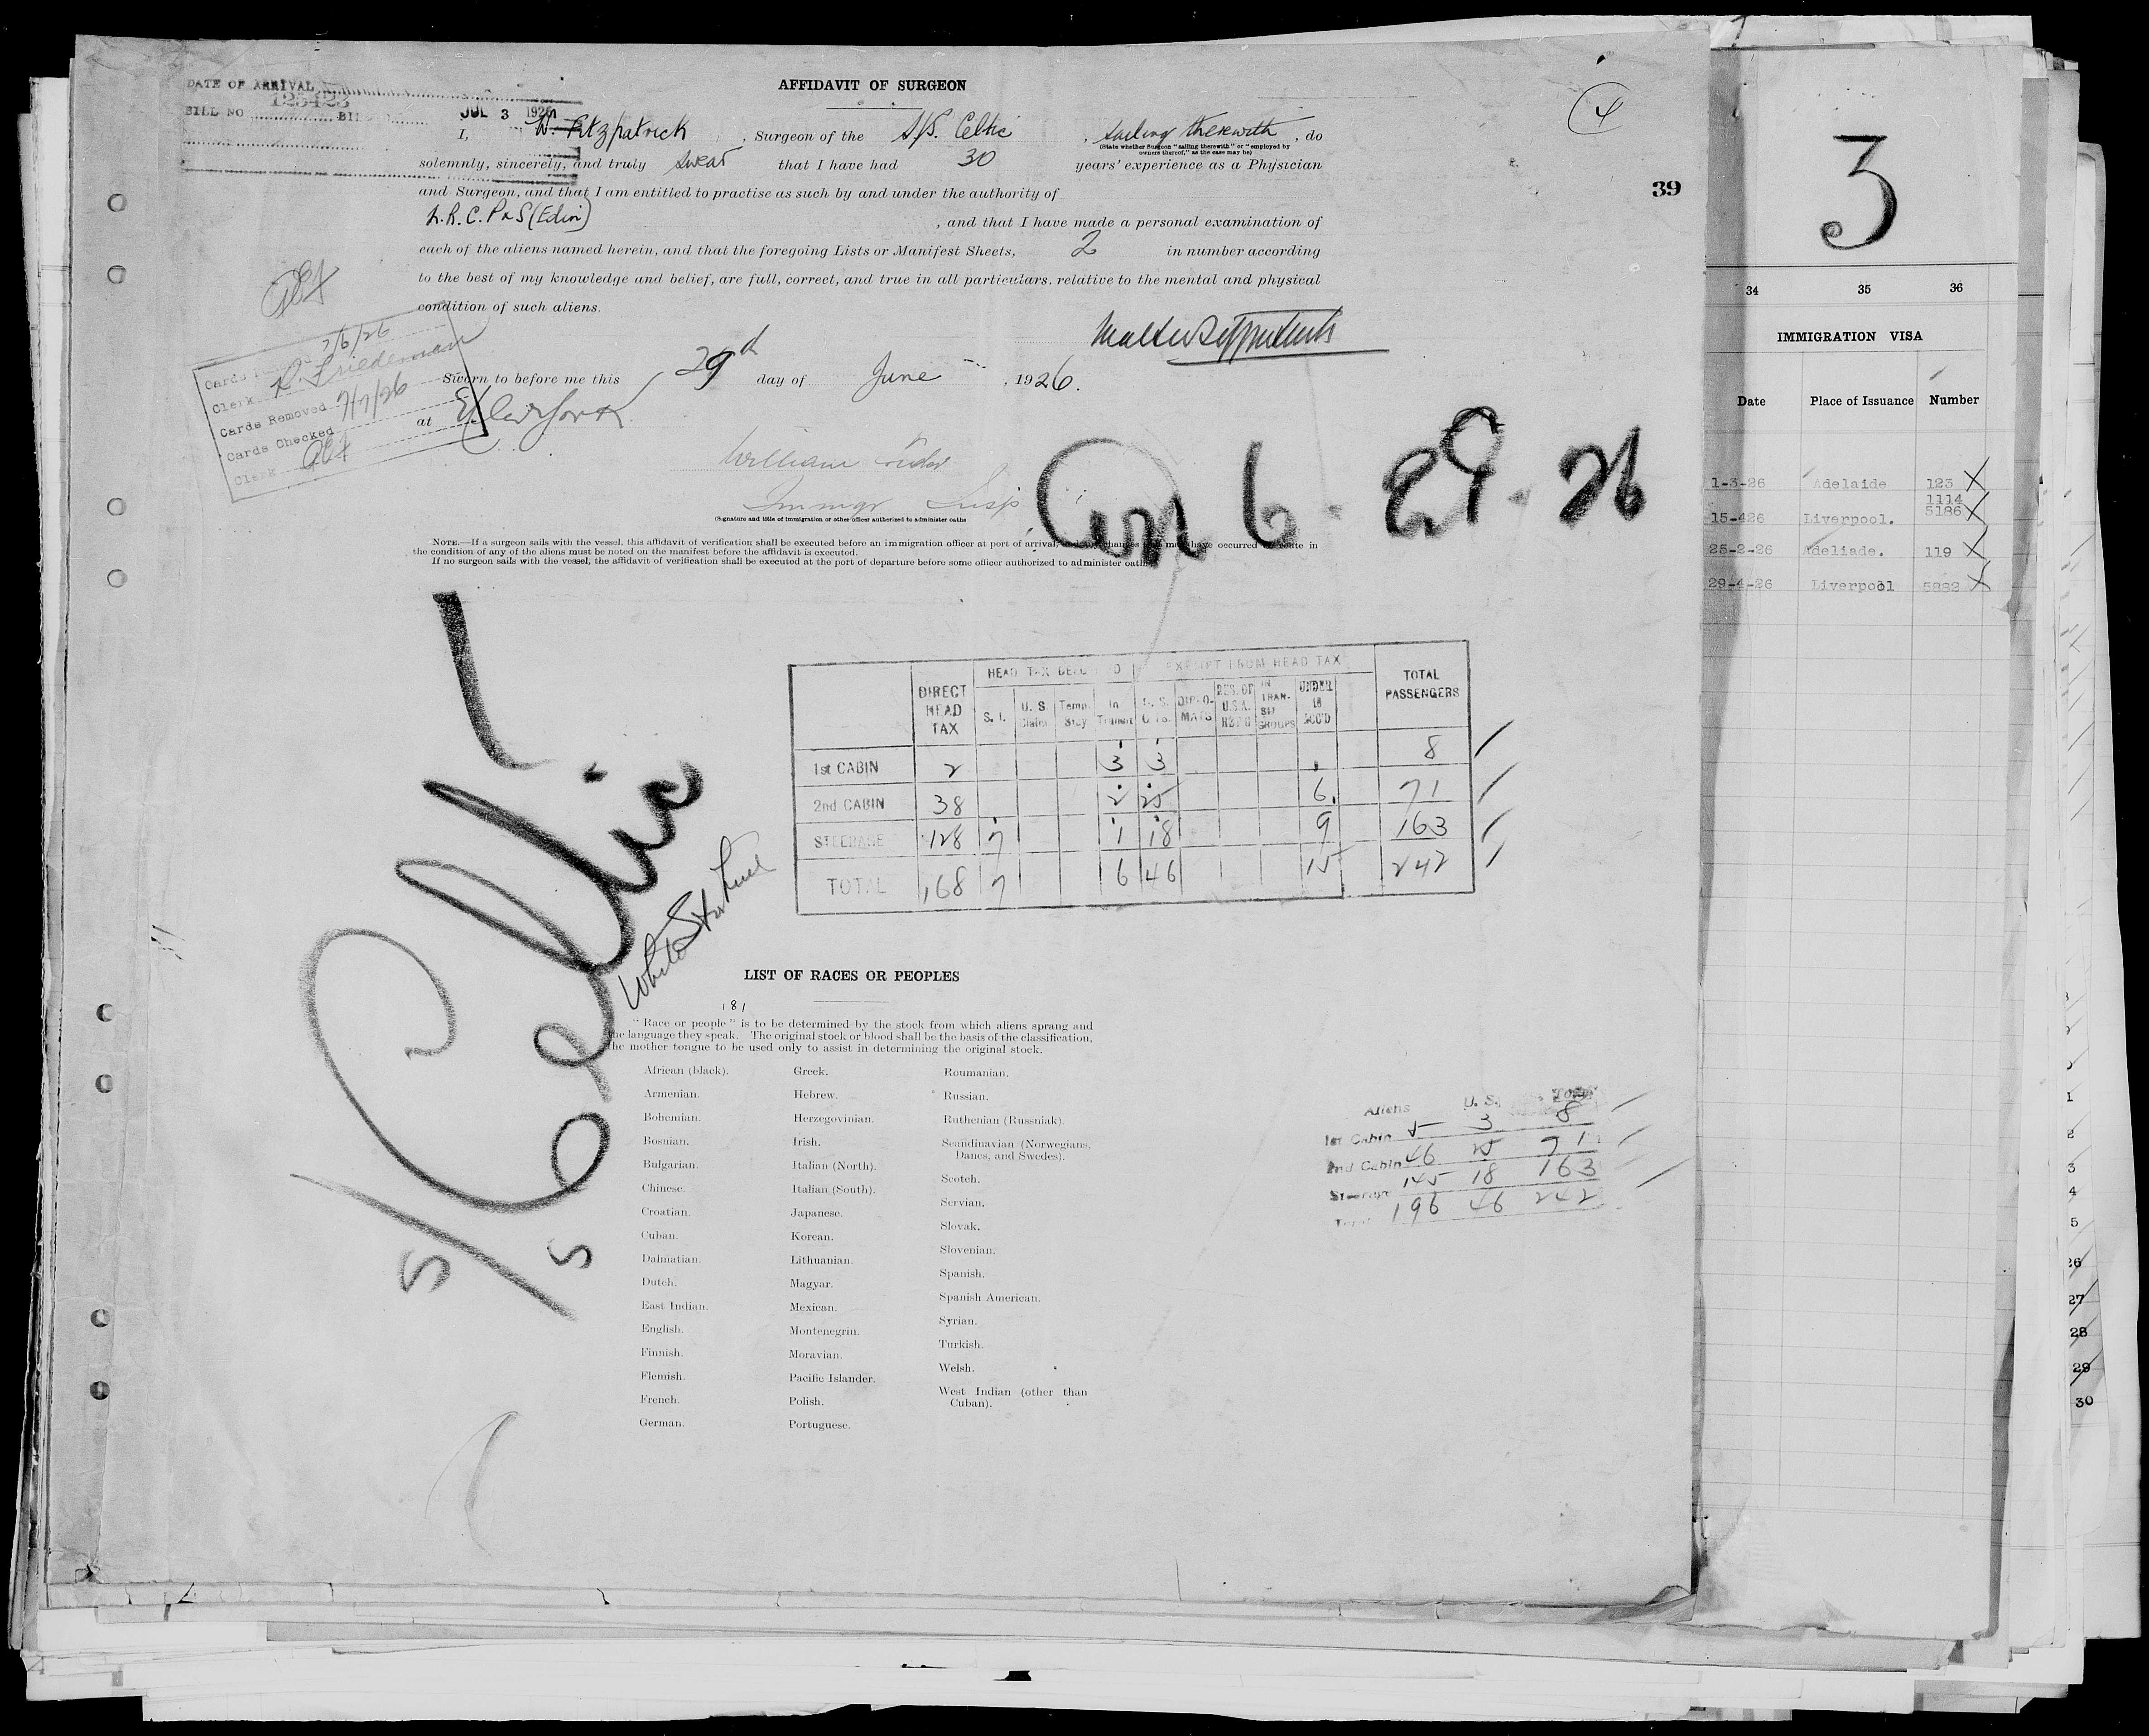 AFFIDAVIT OF SURGEON
DATE OF ARRIVAL
125423
BILL NO
JUL 3 1926
4
I, W. Fitzpatrick, Surgeon of the S/S. Celtic, sailing therewith, do
(State whether Surgeon "sailing therewith" or "employed by
owners thereof," as the case may be)
solemnly, sincerely, and truly swear that I have had 30 years' experience as a Physician
and Surgeon, and that I am entitled to practise as such by and under the authority of
L.R.C.P & S (Edin), and that I have made a personal examination of
each of the aliens named herein, and that the foregoing Lists or Manifest Sheets, 2 in number according
to the best of my knowledge and belief, are full, correct, and true in all particulars, relative to the mental and physical
condition of such aliens.
39
Cards 7/6/26
Clerk R. Friedeman
Cards Removed 7/7/26
Cards Checked
Clerk
Sworn to before me this 29d day of June, 1926.
at New York
William
Immigr Insp
(Signature and title of immigration or other officer authorized to administer oaths
6-29-26
NOTE.—If a surgeon sails with the vessel, this affidavit of verification shall be executed before an immigration officer at port of arrival, changes may have occurred en route in
the condition of any of the aliens must be noted on the manifest before the affidavit is executed.
If no surgeon sails with the vessel, the affidavit of verification shall be executed at the port of departure before some officer authorized to administer oath
HEAD TAX EXEMPT FROM HEAD TAX
DIRECT HEAD TAX S. I. U. S. Temp. Stay In Transit U. S. DIPLO-MATS RES. OF U.S.A. IN TRAN-SIT GROUPS UNDER 16 ACC'D TOTAL PASSENGERS
1st CABIN 2 3 3 8
2nd CABIN 38 2 25 6 71
STEERAGE 128 7 1 18 9 163
TOTAL 168 7 6 46 15 242
S/S Celtic
White Star Line
LIST OF RACES OR PEOPLES
181
"Race or people" is to be determined by the stock from which aliens sprang and
the language they speak. The original stock or blood shall be the basis of the classification,
the mother tongue to be used only to assist in determining the original stock.
African (black).
Armenian.
Bohemian.
Bosnian.
Bulgarian.
Chinese.
Croatian.
Cuban.
Dalmatian.
Dutch.
East Indian.
English.
Finnish.
Flemish.
French.
German.
Greek.
Hebrew.
Herzegovinian.
Irish.
Italian (North).
Italian (South).
Japanese.
Korean.
Lithuanian.
Magyar.
Mexican.
Montenegrin.
Moravian.
Pacific Islander.
Polish.
Portuguese.
Roumanian.
Russian.
Ruthenian (Russniak).
Scandinavian (Norwegians,
Danes, and Swedes).
Scotch.
Servian.
Slovak.
Slovenian.
Spanish.
Spanish American.
Syrian.
Turkish.
Welsh.
West Indian (other than
Cuban).
Aliens U. S. Total
1st Cabin 5 3 8
2nd Cabin 46 25 71
Steerage 145 18 163
Total 196 46 242
3
34 35 36
IMMIGRATION VISA
Date Place of Issuance Number
1-3-26 Adelaide 123
1114
15-426 Liverpool. 5186
25-2-26 Adeliade. 119
29-4-26 Liverpool 5882
1
2
3
4
5
26
27
28
29
30